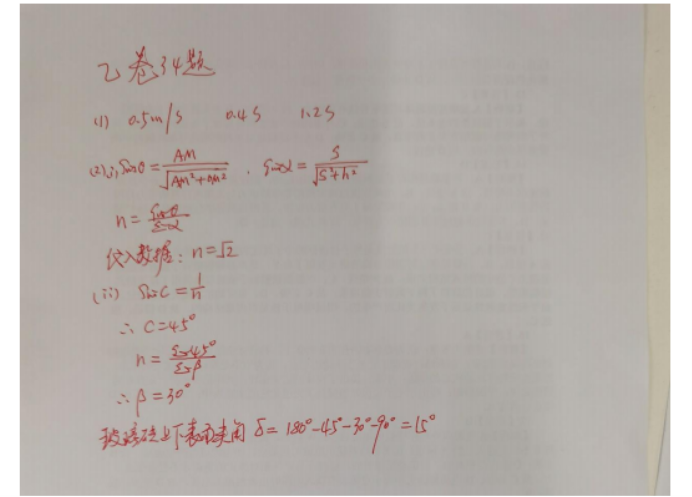 乙卷34题
(1) 0.5m/s 0.4s 1.2s
(2)(i) sinθ = AM/√(AM²+AM²) . sinα = S/√(S²+h²)
n = sinθ/sinα
代入数据: n=√2
(ii) sinC = 1/n
∴ C=45°
n = sin45°/sinβ
∴ β=30°
玻璃砖上下表面夹角 δ= 180°-45°-30°-90°=15°